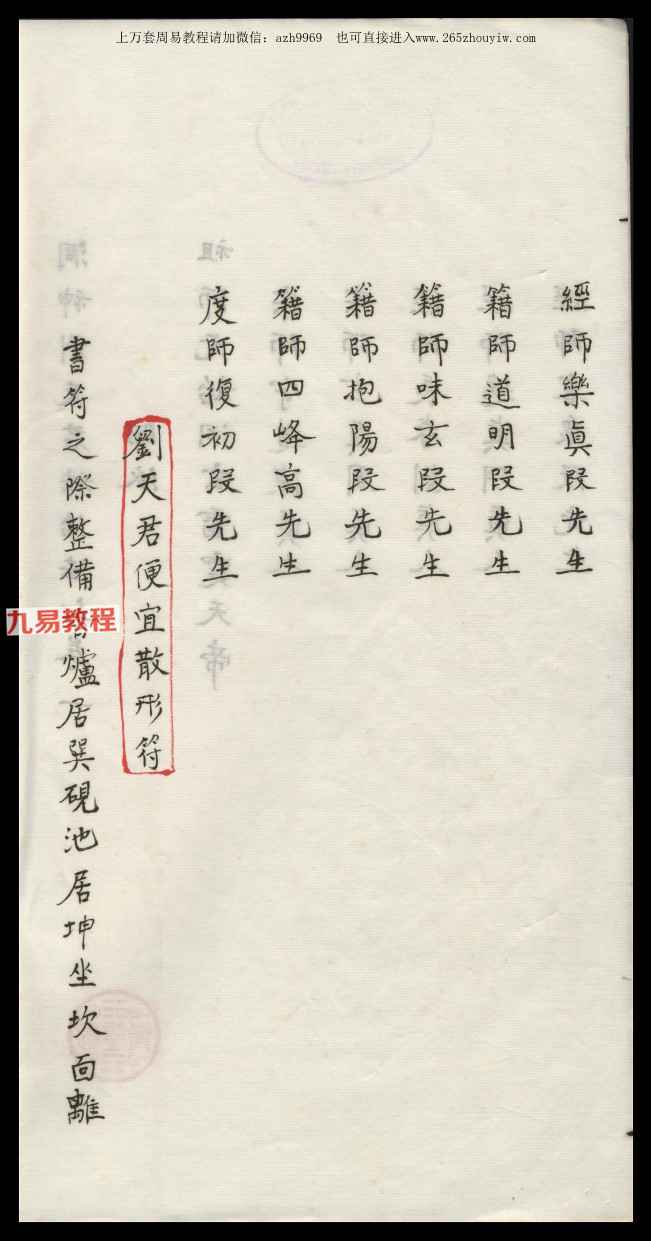 上万套周易教程请加微信：azh9969　也可直接进入www.265zhouyiw.com
經師樂眞段先生
籍師道明段先生
籍師味玄段先生
籍師抱陽段先生
籍師四峰高先生
度師復初段先生
劉天君便宜散形符
書符之際整備 爐居巽硯池居坤坐坎面離
九易教程